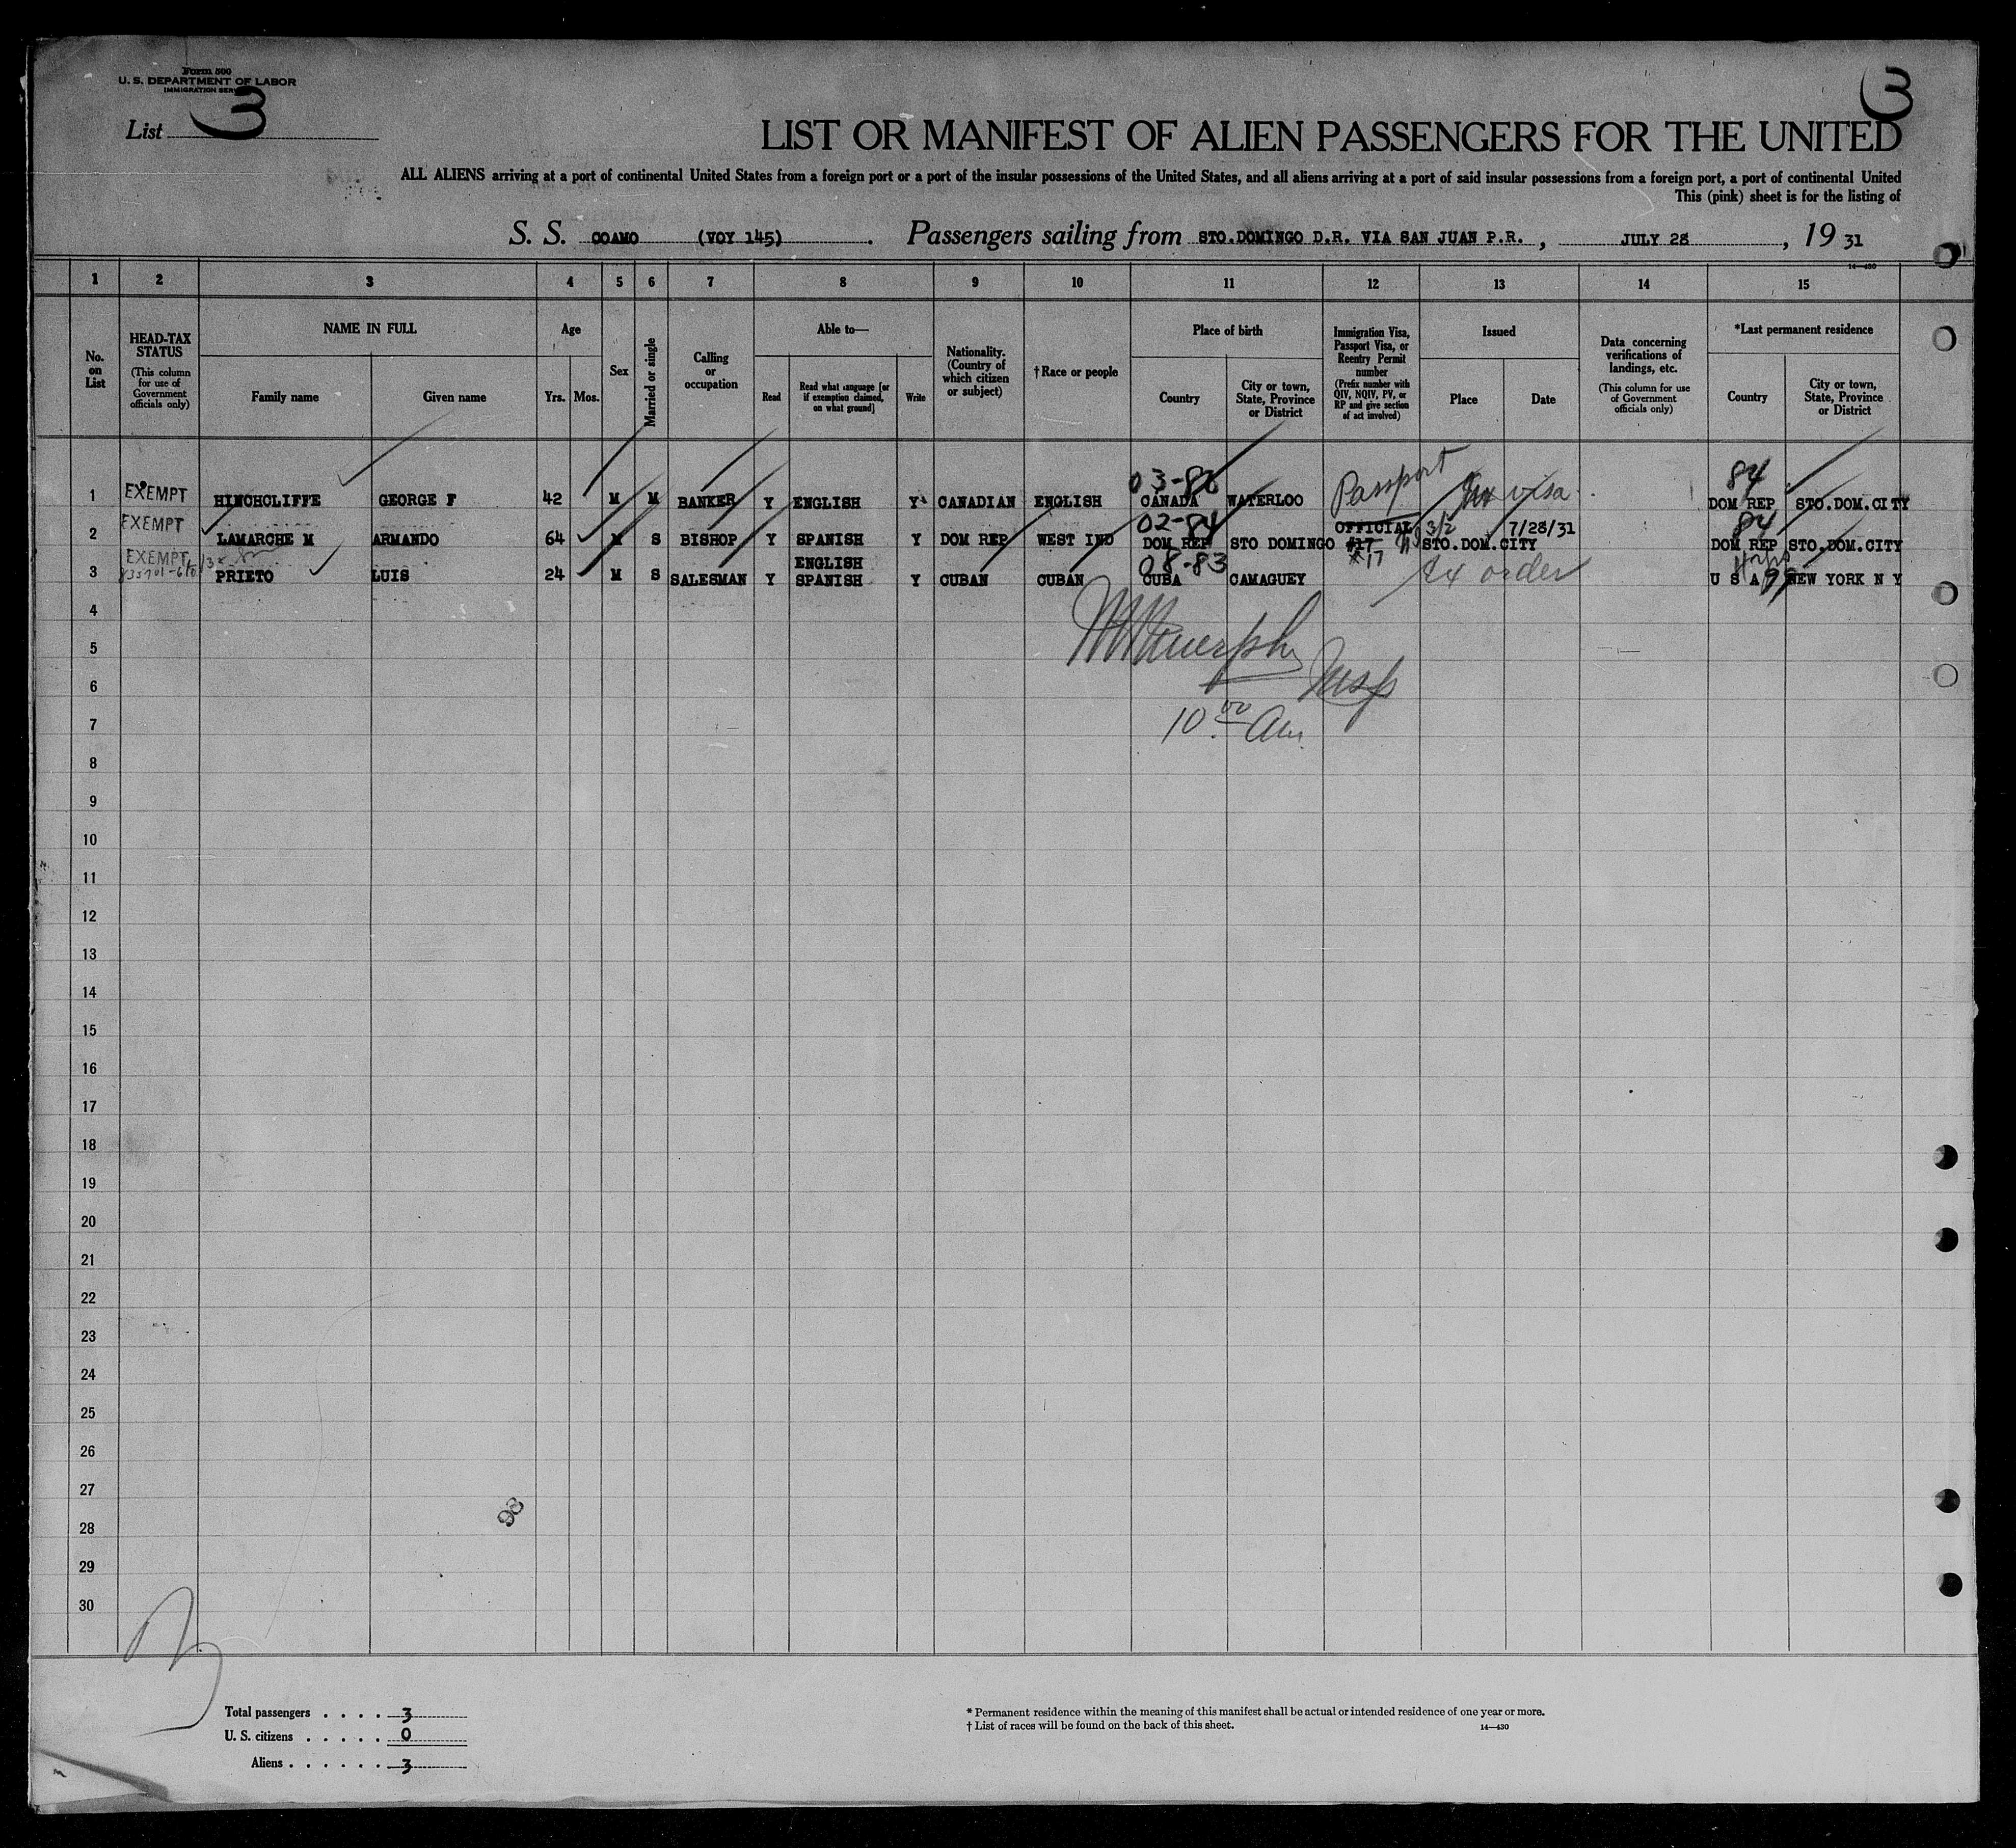 Form 500
U. S. DEPARTMENT OF LABOR
IMMIGRATION SERV
List 3
3
LIST OR MANIFEST OF ALIEN PASSENGERS FOR THE UNITED
ALL ALIENS arriving at a port of continental United States from a foreign port or a port of the insular possessions of the United States, and all aliens arriving at a port of said insular possessions from a foreign port, a port of continental United
This (pink) sheet is for the listing of
S. S. COAMO (VOY 145). Passengers sailing from STO.DOMINGO D.R. VIA SAN JUAN P.R., JULY 28, 19 31
14—430
1 2 3 4 5 6 7 8 9 10 11 12 13 14 15
No. on List
HEAD-TAX STATUS (This column for use of Government officials only)
NAME IN FULL
Family name Given name
Age
Yrs. Mos.
Sex
Married or single
Calling or occupation
Able to—
Read Read what language [or if exemption claimed, on what ground] Write
Nationality. (Country of which citizen or subject)
†Race or people
Place of birth
Country City or town, State, Province or District
Immigration Visa, Passport Visa, or Reentry Permit number (Prefix number with QIV, NQIV, PV, or RP and give section of act involved)
Issued
Place Date
Data concerning verifications of landings, etc. (This column for use of Government officials only)
*Last permanent residence
Country City or town, State, Province or District
03-86 84
1 EXEMPT HINCHCLIFFE GEORGE F 42 M M BANKER Y ENGLISH Y CANADIAN ENGLISH CANADA WATERLOO Passport visa DOM REP STO.DOM.CITY
02-84 OFFICIAL 3/2 7/28/31 84
2 EXEMPT LAMARCHE M ARMANDO 64 M S BISHOP Y SPANISH Y DOM REP WEST IND DOM REP STO DOMINGO #17 STO.DOM.CITY DOM REP STO.DOM.CITY
ENGLISH 08-83 #17
3 EXEMPT PRIETO LUIS 24 M S SALESMAN Y SPANISH Y CUBAN CUBAN CUBA CAMAGUEY Ex order U S A NEW YORK N Y
4
5
Insp
6
7 10 00 Am
8
9
10
11
12
13
14
15
16
17
18
19
20
21
22
23
24
25
26
27
98
28
29
30
Total passengers . . . . 3
U. S. citizens . . . . . 0
Aliens . . . . . . 3
* Permanent residence within the meaning of this manifest shall be actual or intended residence of one year or more.
† List of races will be found on the back of this sheet. 14—430